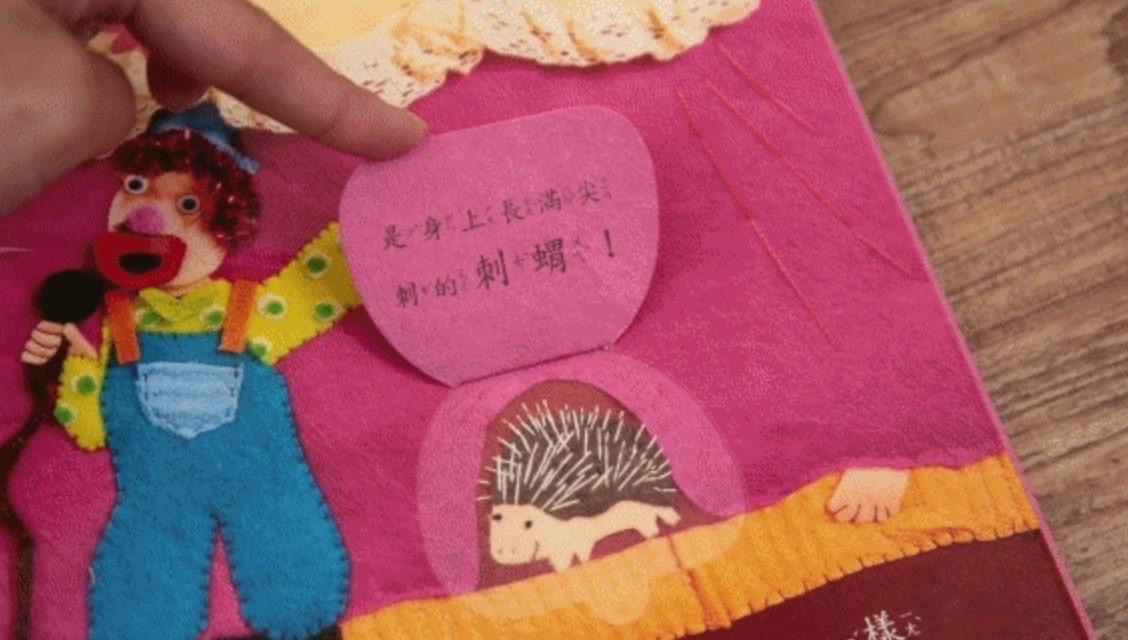 是身上長滿尖
刺的刺蝟！
樣